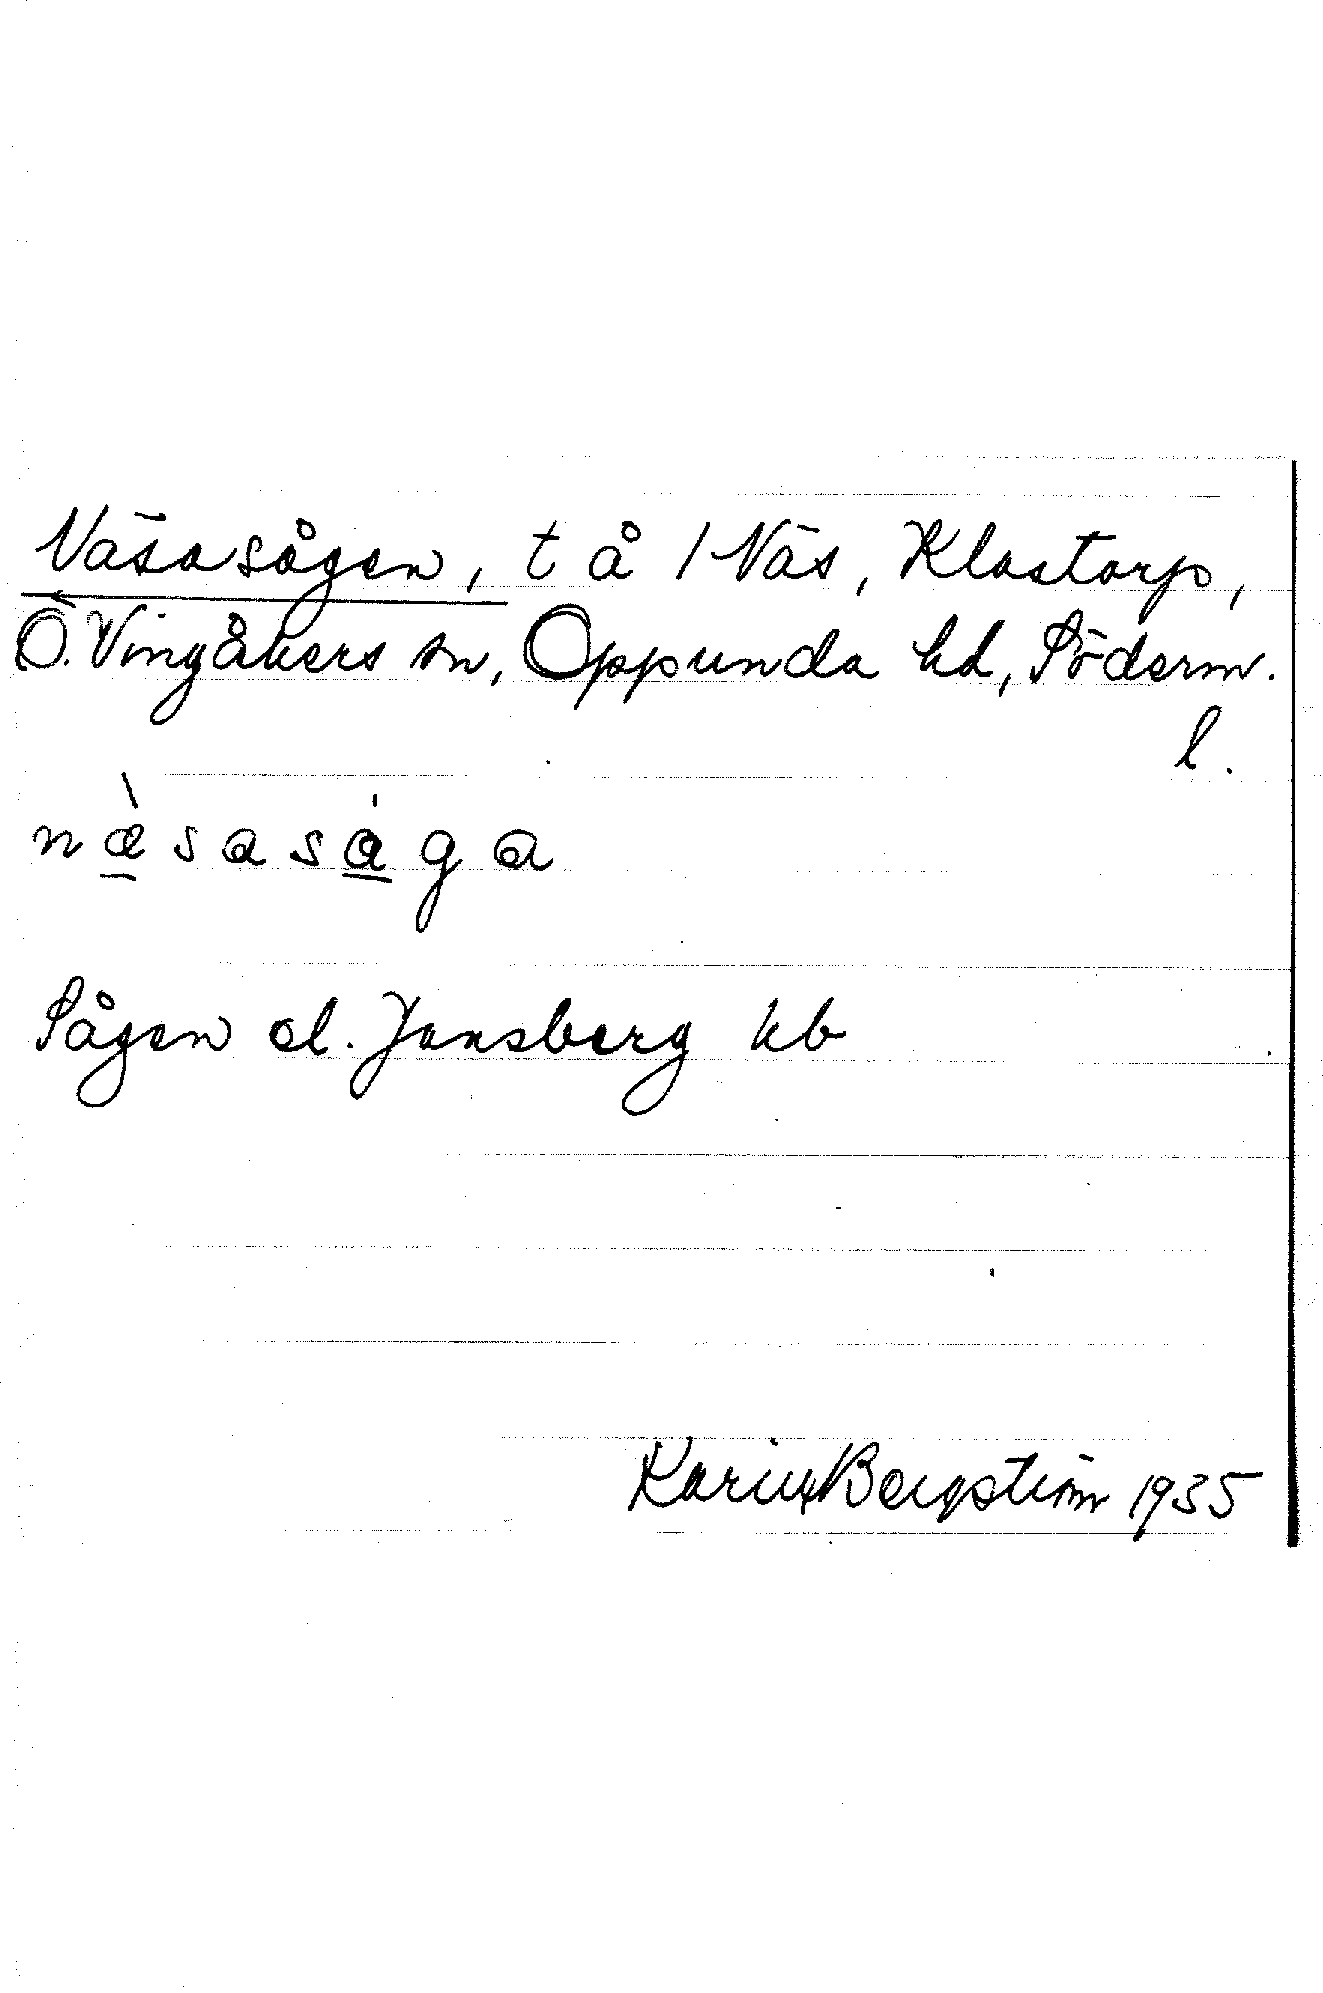 Näsasågen, t å 1 Näs, Klastorp,
Ö. Vingåkers sn, Oppunda hd, Söderm.
l.
næ̀sasåga
Sågen el. Jansberg kb
Karin Bergström 1935